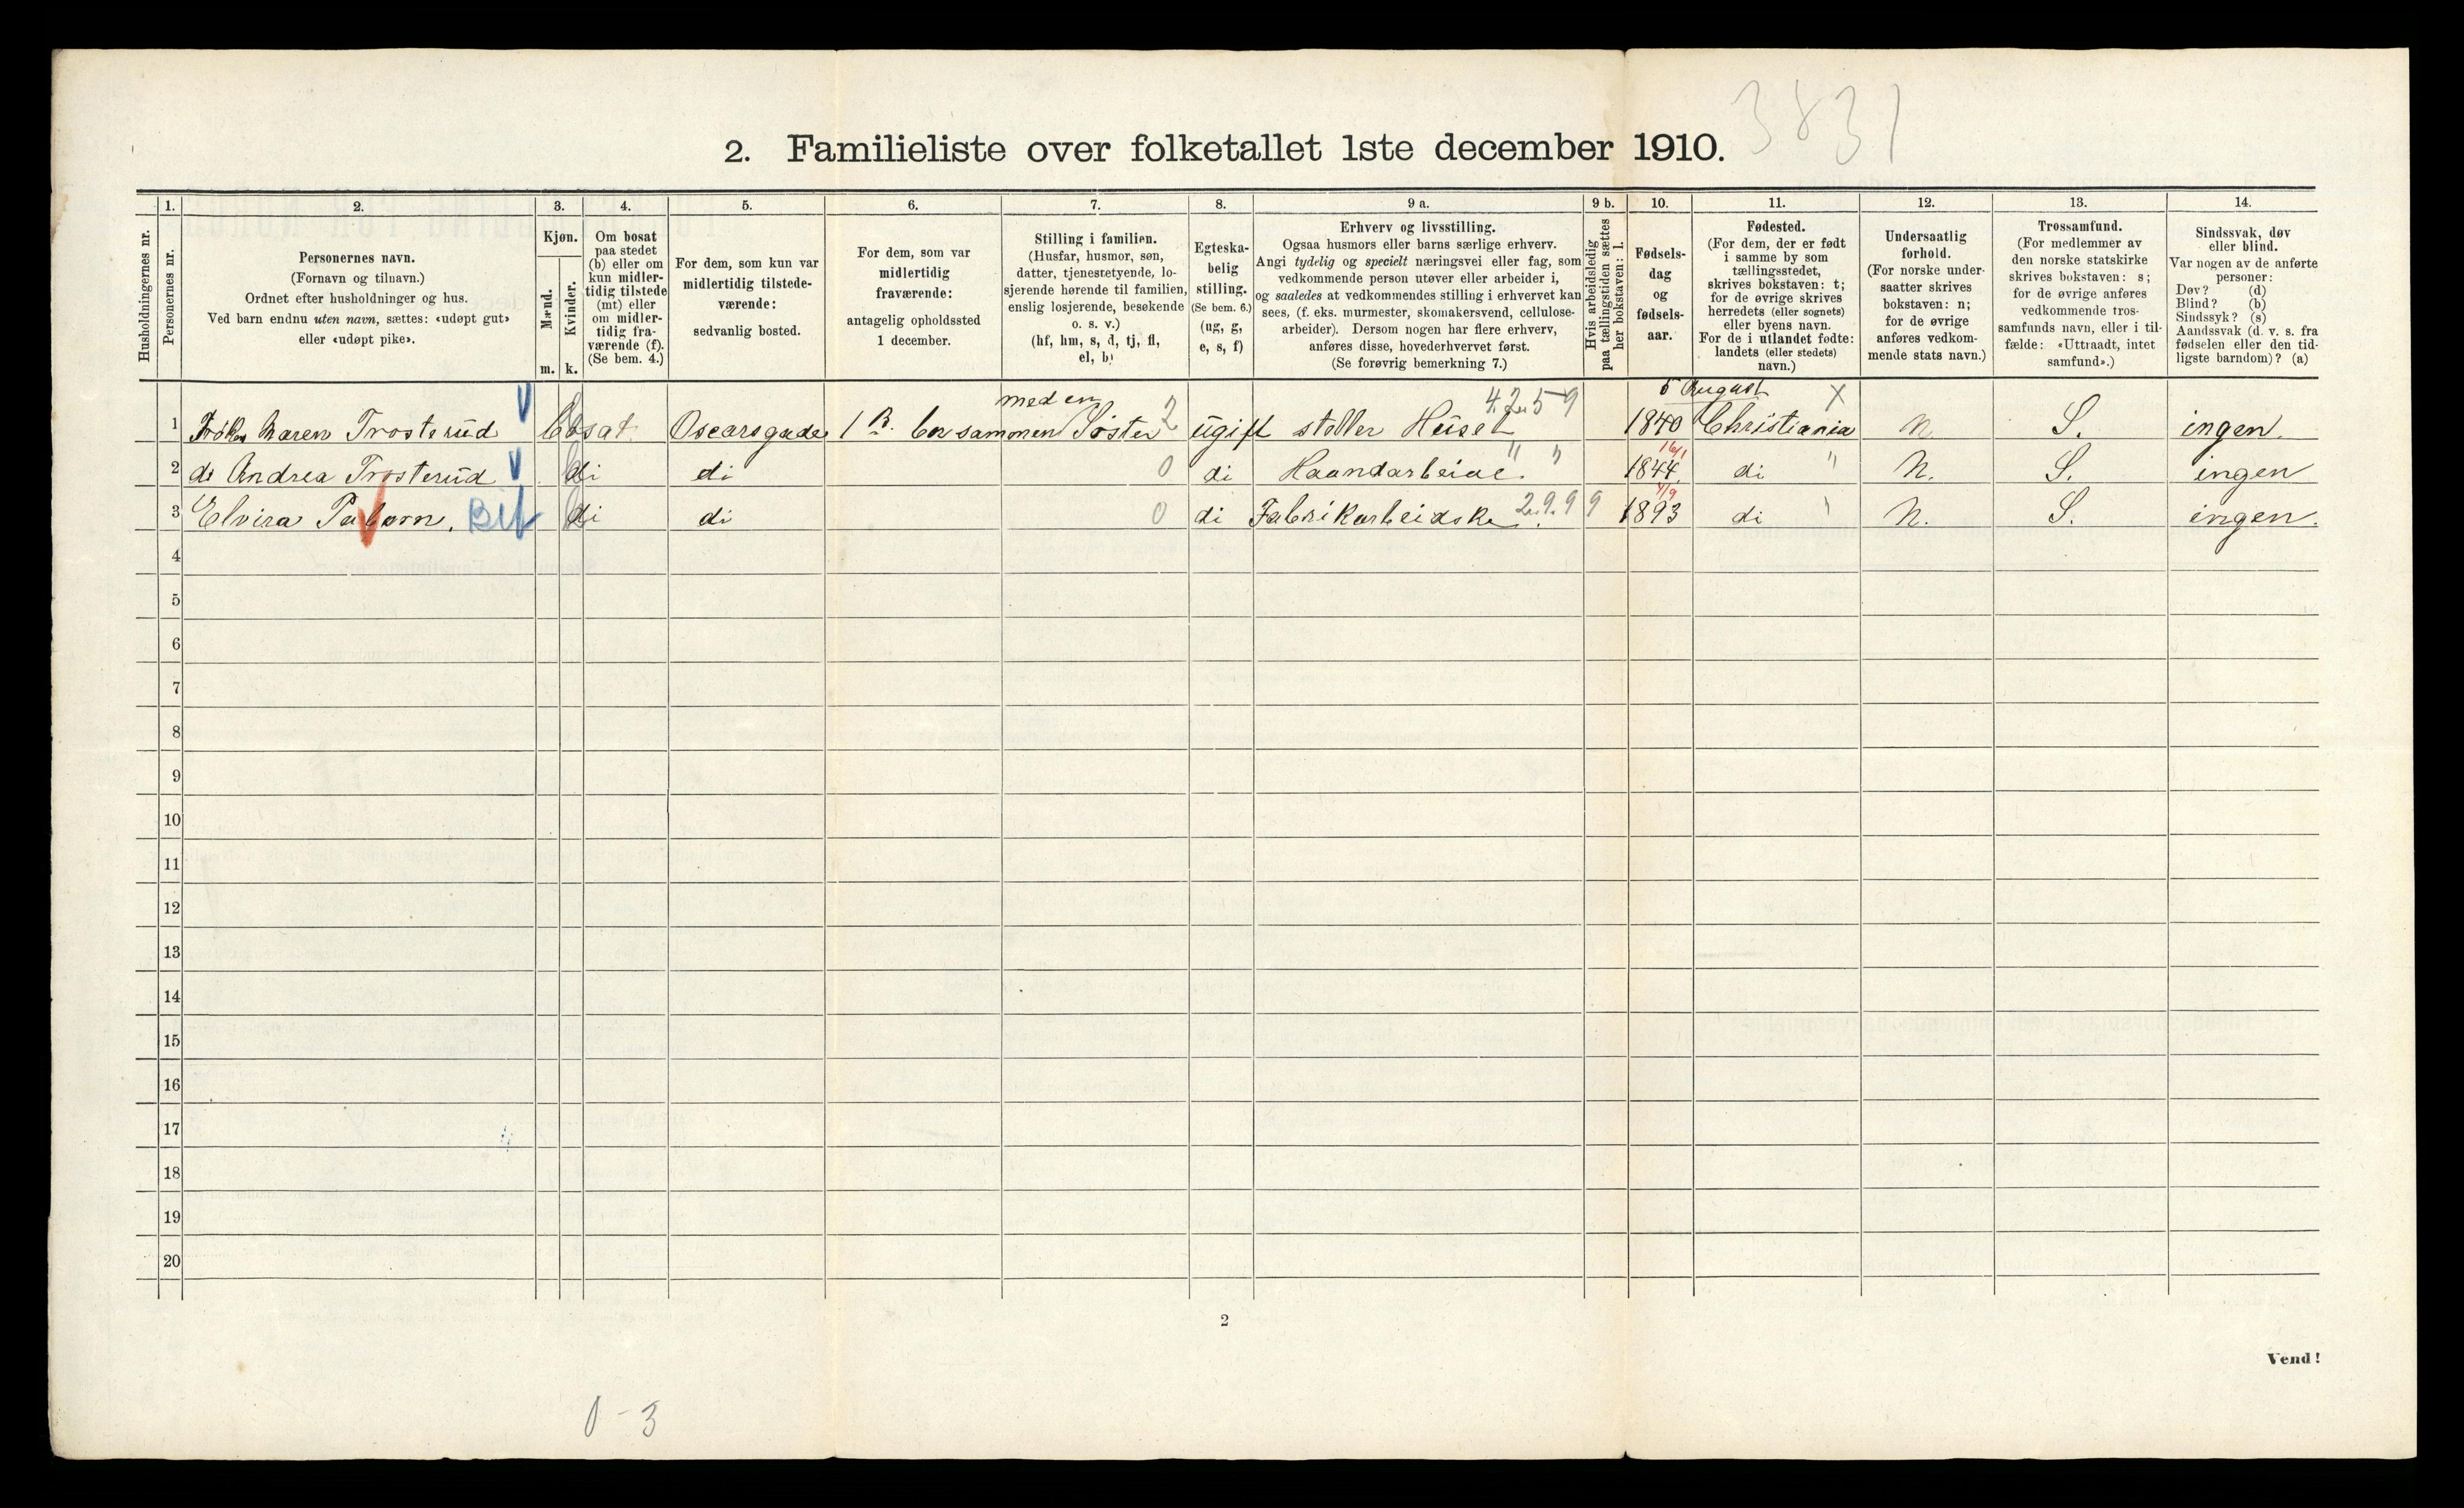 3831
2. Familieliste over folketallet 1ste december 1910.
Husholdningernes nr.
1.
Personernes nr.
2.
Personernes navn.
(Fornavn og tilnavn.)
Ordnet efter husholdninger og hus.
Ved barn endnu uten navn, sættes: «udøpt gut»
eller «udøpt pike».
3.
Kjøn.
Mænd.
Kvinder.
m. k.
4.
Om bosat
paa stedet
(b) eller om
kun midler-
tidig tilstede
(mt) eller
om midler-
tidig fra-
værende (f).
(Se bem. 4.)
5.
For dem, som kun var
midlertidig tilstede-
værende:
sedvanlig bosted.
6.
For dem, som var
midlertidig
fraværende:
antagelig opholdssted
1 december.
7.
Stilling i familien.
(Husfar, husmor, søn,
datter, tjenestetyende, lo-
sjerende hørende til familien,
enslig losjerende, besøkende
o. s. v.)
(hf, hm, s, d, tj, fl,
el, b)
8.
Egteska-
belig
stilling.
(Se bem. 6.)
(ug, g,
e, s, f)
9 a.
Erhverv og livsstilling.
Ogsaa husmors eller barns særlige erhverv.
Angi tydelig og specielt næringsvei eller fag, som
vedkommende person utøver eller arbeider i,
og saaledes at vedkommendes stilling i erhvervet kan
sees, (f. eks. murmester, skomakersvend, cellulose-
arbeider). Dersom nogen har flere erhverv,
anføres disse, hovederhvervet først.
(Se forøvrig bemerkning 7.)
9 b.
Hvis arbeidsledig
paa tællingstiden sættes
her bokstaven: l.
10.
Fødsels-
dag
og
fødsels-
aar.
11.
Fødested.
(For dem, der er født
i samme by som
tællingsstedet,
skrives bokstaven: t;
for de øvrige skrives
herredets (eller sognets)
eller byens navn.
For de i utlandet fødte:
landets (eller stedets)
navn.)
12.
Undersaatlig
forhold.
(For norske under-
saatter skrives
bokstaven: n;
for de øvrige
anføres vedkom-
mende stats navn.)
13.
Trossamfund.
(For medlemmer av
den norske statskirke
skrives bokstaven: s;
for de øvrige anføres
vedkommende tros-
samfunds navn, eller i til-
fælde: «Uttraadt, intet
samfund».)
14.
Sindssvak, døv
eller blind.
Var nogen av de anførte
personer:
Døv? (d)
Blind? (b)
Sindssyk? (s)
Aandssvak (d. v. s. fra
fødselen eller den tid-
ligste barndom)? (a)
1 Frøken Maren Trosterud bosat Oscarsgade 1 B. bor sammen med en Søster 2 ugift steller Huset 4.2.59 5 August 1840 Christiania X N. S. ingen.
2 do Andrea Trosterud di di 0 di Haandarbeide. " " 16/1 1844. di " N. S. ingen
3 Elvira di di 0 di Fabrikarbeidske. 2.9.99 4/9 1893 di " N. S. ingen.
4
5
6
7
8
9
10
11
12
13
14
15
16
17
18
19
20
2
Vend!
0-3